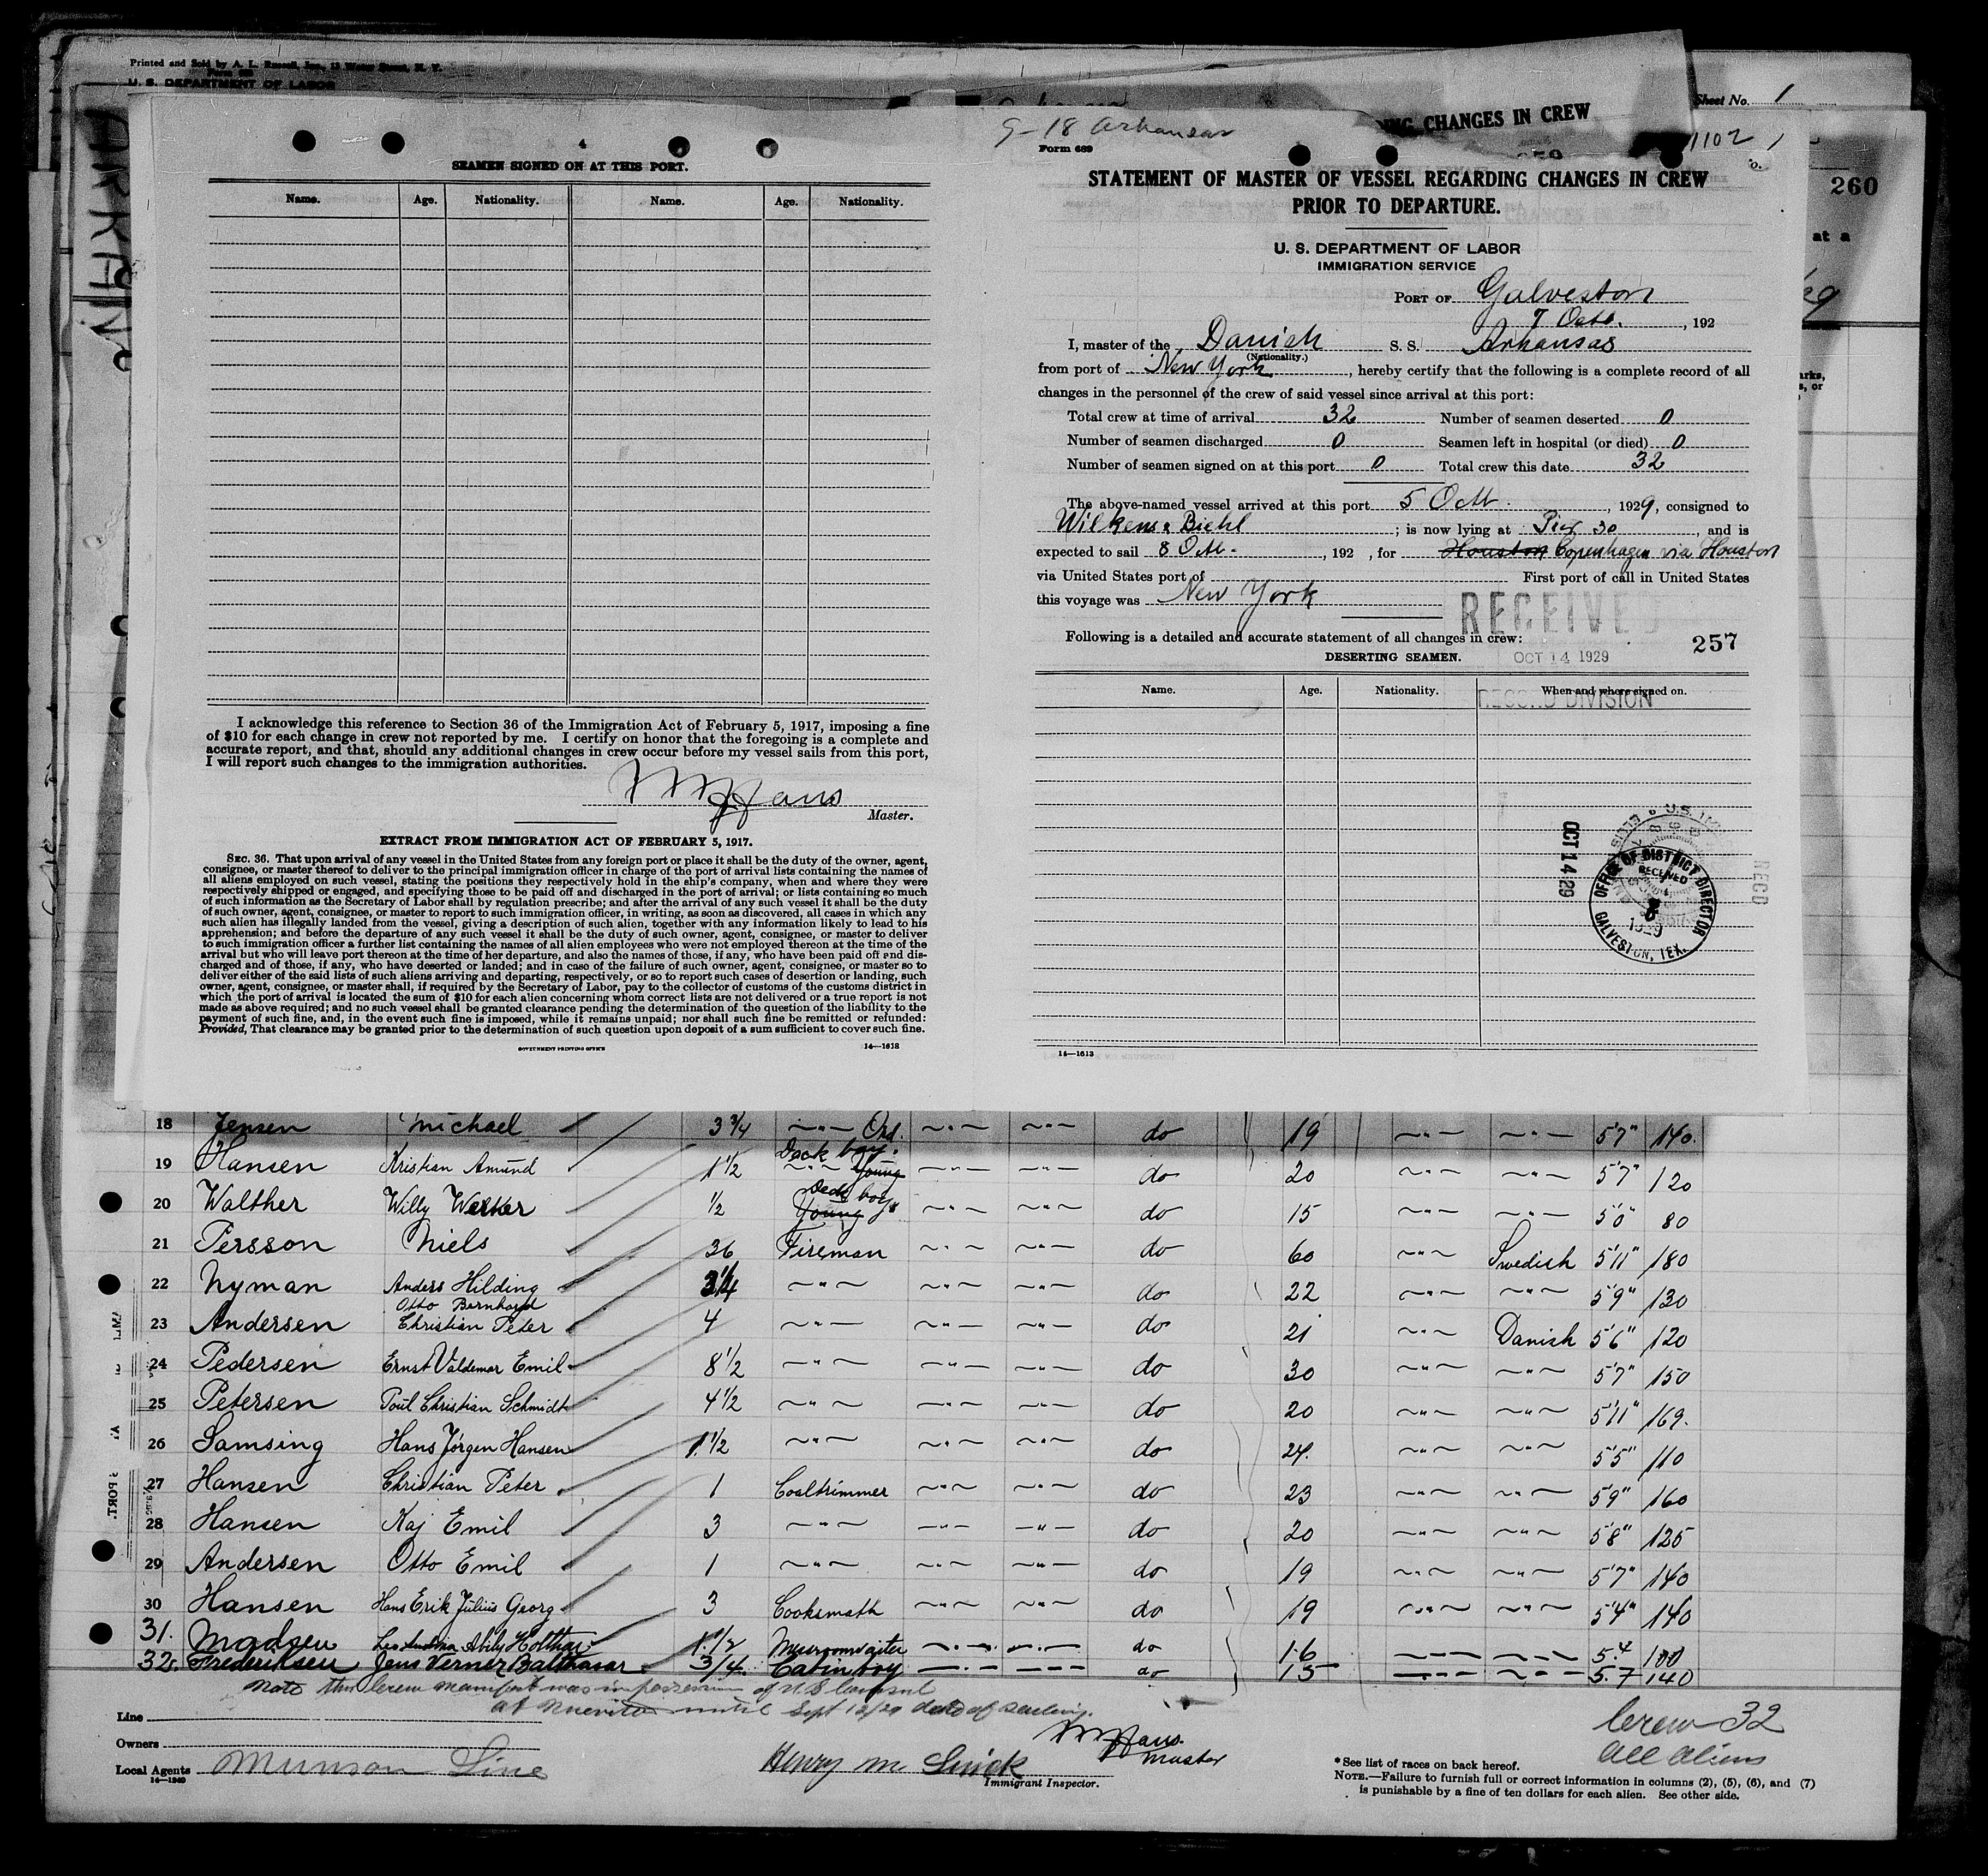 Printed and Sold by A. L. Russell, Inc., 12 Water Street, N. Y.
U. S. DEPARTMENT OF LABOR
Sheet No. 1
260
at a
ARKAN
4
SEAMEN SIGNED ON AT THIS PORT.
Name. Age. Nationality. Name. Age. Nationality.
I acknowledge this reference to Section 36 of the Immigration Act of February 5, 1917, imposing a fine
of $10 for each change in crew not reported by me. I certify on honor that the foregoing is a complete and
accurate report, and that, should any additional changes in crew occur before my vessel sails from this port,
I will report such changes to the immigration authorities.
Master.
EXTRACT FROM IMMIGRATION ACT OF FEBRUARY 5, 1917.
SEC. 36. That upon arrival of any vessel in the United States from any foreign port or place it shall be the duty of the owner, agent,
consignee, or master thereof to deliver to the principal immigration officer in charge of the port of arrival lists containing the names of
all aliens employed on such vessel, stating the positions they respectively hold in the ship's company, when and where they were
respectively shipped or engaged, and specifying those to be paid off and discharged in the port of arrival; or lists containing so much
of such information as the Secretary of Labor shall by regulation prescribe; and after the arrival of any such vessel it shall be the duty
of such owner, agent, consignee, or master to report to such immigration officer, in writing, as soon as discovered, all cases in which any
such alien has illegally landed from the vessel, giving a description of such alien, together with any information likely to lead to his
apprehension; and before the departure of any such vessel it shall be the duty of such owner, agent, consignee, or master to deliver
to such immigration officer a further list containing the names of all alien employees who were not employed thereon at the time of the
arrival but who will leave port thereon at the time of her departure, and also the names of those, if any, who have been paid off and dis-
charged and of those, if any, who have deserted or landed; and in case of the failure of such owner, agent, consignee, or master so to
deliver either of the said lists of such aliens arriving and departing, respectively, or so to report such cases of desertion or landing, such
owner, agent, consignee, or master shall, if required by the Secretary of Labor, pay to the collector of customs of the customs district in
which the port of arrival is located the sum of $10 for each alien concerning whom correct lists are not delivered or a true report is not
made as above required; and no such vessel shall be granted clearance pending the determination of the question of the liability to the
payment of such fine, and, in the event such fine is imposed, while it remains unpaid; nor shall such fine be remitted or refunded:
Provided, That clearance may be granted prior to the determination of such question upon deposit of a sum sufficient to cover such fine.
GOVERNMENT PRINTING OFFICE 14—1613
9-18 Arkansas
Form 689
CHANGES IN CREW
1102
STATEMENT OF MASTER OF VESSEL REGARDING CHANGES IN CREW
PRIOR TO DEPARTURE.
U. S. DEPARTMENT OF LABOR
IMMIGRATION SERVICE
PORT OF Galveston
7 Octo. , 192
I, master of the Danish S. S. Arkansas
(Nationality.)
from port of New York , hereby certify that the following is a complete record of all
changes in the personnel of the crew of said vessel since arrival at this port:
Total crew at time of arrival 32 Number of seamen deserted 0
Number of seamen discharged 0 Seamen left in hospital (or died) 0
Number of seamen signed on at this port 0 Total crew this date 32
The above-named vessel arrived at this port 5 Oct. , 1929, consigned to
Wilkens & Biehl ; is now lying at Pier 30 , and is
expected to sail 8 Oct. , 192 , for Houston Copenhagen via Houston
via United States port of First port of call in United States
this voyage was New York
RECEIVED
Following is a detailed and accurate statement of all changes in crew:
257
DESERTING SEAMEN. OCT 14 1929
Name. Age. Nationality. When and where signed on.
RECORD DIVISION
OCT 14 29
OFFICE OF DISTRICT DIRECTOR
RECEIVED
8
1929
GALVESTON, TEX.
RECD
14—1613
18 Jensen Michael 3 3/4 —"— Ord. —"— —"— do 19 —"— —"— 5'7" 140.
19 Hansen Kristian Amund 1 1/2 Deck boy. —"— Young —"— —"— do 20 —"— —"— 5'7" 120
20 Walther Willy Werner 1/2 Deck boy Young —"— —"— do 15 —"— —"— 5'0" 80
21 Persson Niels 36 Fireman —"— —"— do 60 —"— Swedish 5'11" 180
22 Nyman Anders Hilding 3 1/4 —"— —"— —"— do 22 —"— —"— 5'9" 130
23 Andersen Otto Bernhard Christian Peter 4 —"— —"— —"— do 21 —"— Danish 5'6" 120
24 Pedersen Ernst Valdemar Emil 8 1/2 —"— —"— —"— do 30 —"— —"— 5'7" 150
25 Petersen Poul Christian Schmidt 4 1/2 —"— —"— —"— do 20 —"— —"— 5'11" 169.
26 Samsing Hans Jörgen Hansen 1 1/2 —"— —"— —"— do 24. —"— —"— 5'5" 110
27 Hansen Christian Peter 1 Coaltrimmer —"— —"— do 23 —"— —"— 5'9" 160
28 Hansen Kaj Emil 3 —"— —"— —"— do 20 —"— —"— 5'8" 125
29 Andersen Otto Emil 1 —"— —"— —"— do 19 —"— —"— 5'7" 140
30 Hansen Hans Erik Julius Georg 3 Cooksmath —"— —"— do 19 —"— —"— 5'4" 140
31. Madsen 1 1/2 Messroomwaiter —"— —"— do 16 —"— —"— 5.4 100
32. Frederiksen Jens Verner Balthasar 3/4 Cabinboy —"— —"— do 15 —"— —"— 5.7 140
Note this Crew manifest was in possession of U.S Consul
at Nuevitas until Sept 12/29 date of sailing.
Line
Owners
Local Agents Munson Line
14—1240
Master
Henry M.
Immigrant Inspector.
Crew 32
All Aliens
*See list of races on back hereof.
NOTE.—Failure to furnish full or correct information in columns (2), (5), (6), and (7)
is punishable by a fine of ten dollars for each alien. See other side.